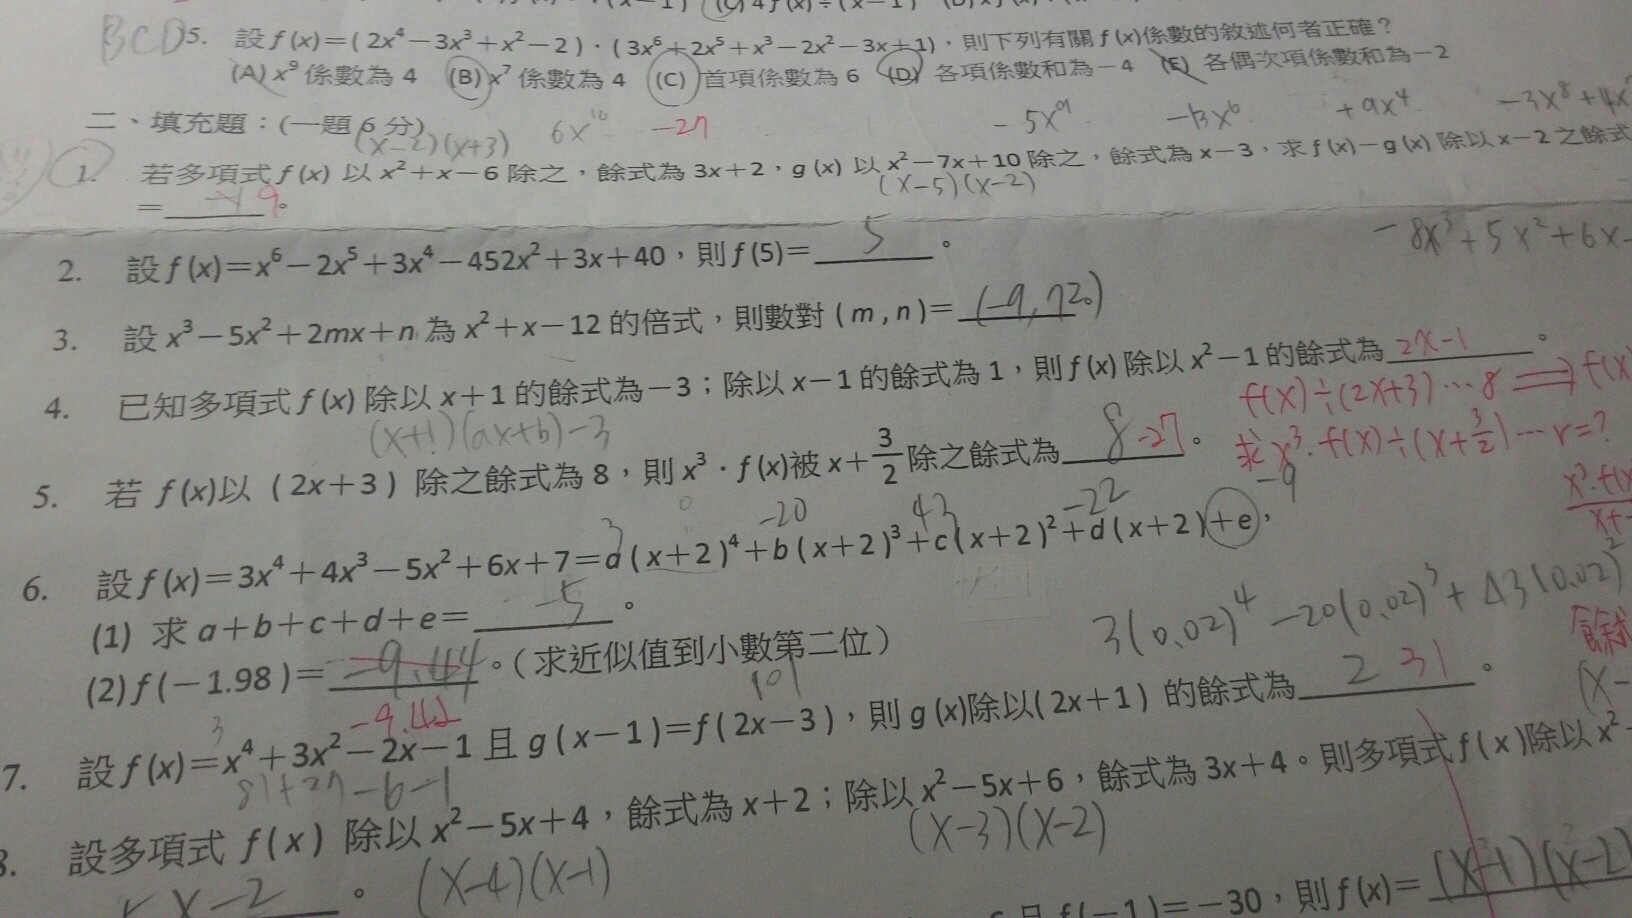 BCD 5. 設 f(x)=(2x⁴−3x³+x²−2)·(3x⁶+2x⁵+x³−2x²−3x+1)，則下列有關 f(x)係數的敘述何者正確？
(A) x⁹ 係數為 4 (B) x⁷ 係數為 4 (C) 首項係數為 6 (D) 各項係數和為－4 (E) 各偶次項係數和為－2
6x¹⁰ −5x⁹ −13x⁶ +9x⁴ −3x⁸+4x⁷
二、填充題：(一題 6 分) −27
(x−2)(x+3)
1. 若多項式 f(x) 以 x²＋x－6 除之，餘式為 3x＋2，g(x) 以 x²－7x＋10 除之，餘式為 x－3，求 f(x)－g(x) 除以 x－2 之餘式
(x−5)(x−2)
＝ 9。
−8x³+5x²+6x−
2. 設 f(x)＝x⁶－2x⁵＋3x⁴－452x²＋3x＋40，則 f(5)＝ 5 。
3. 設 x³－5x²＋2mx＋n 為 x²＋x－12 的倍式，則數對 (m,n)＝ (−9,72) 。
4. 已知多項式 f(x) 除以 x＋1 的餘式為－3；除以 x－1 的餘式為 1，則 f(x) 除以 x²－1 的餘式為 2x−1 。
(x+1)(ax+b)−3
f(x)÷(2x+3)…8 ⟹ f(x
5. 若 f(x)以 (2x＋3) 除之餘式為 8，則 x³·f(x)被 x＋3/2 除之餘式為 8 −27 。
求 x³·f(x)÷(x+3/2)…r=?
x³·f(x
x+
3 −20 43 −22 −9
6. 設 f(x)＝3x⁴＋4x³－5x²＋6x＋7＝a(x＋2)⁴＋b(x＋2)³＋c(x＋2)²＋d(x＋2)＋e，
(1) 求 a＋b＋c＋d＋e＝ −5 。
3(0.02)⁴−20(0.02)³+43(0.02)²
(2) f(－1.98)＝ −9.44 。(求近似值到小數第二位)
−9.42
101
餘式
(x−
7. 設 f(x)＝x⁴＋3x²－2x－1 且 g(x－1)＝f(2x－3)，則 g(x)除以(2x＋1) 的餘式為 2 31 。
3
81+27−6−1
8. 設多項式 f(x) 除以 x²－5x＋4，餘式為 x＋2；除以 x²－5x＋6，餘式為 3x＋4。則多項式 f(x)除以 x²
(x−3)(x−2)
x−2 。 (x−4)(x−1)
且 f(−1)＝－30，則 f(x)＝ (x−1)(x−2)